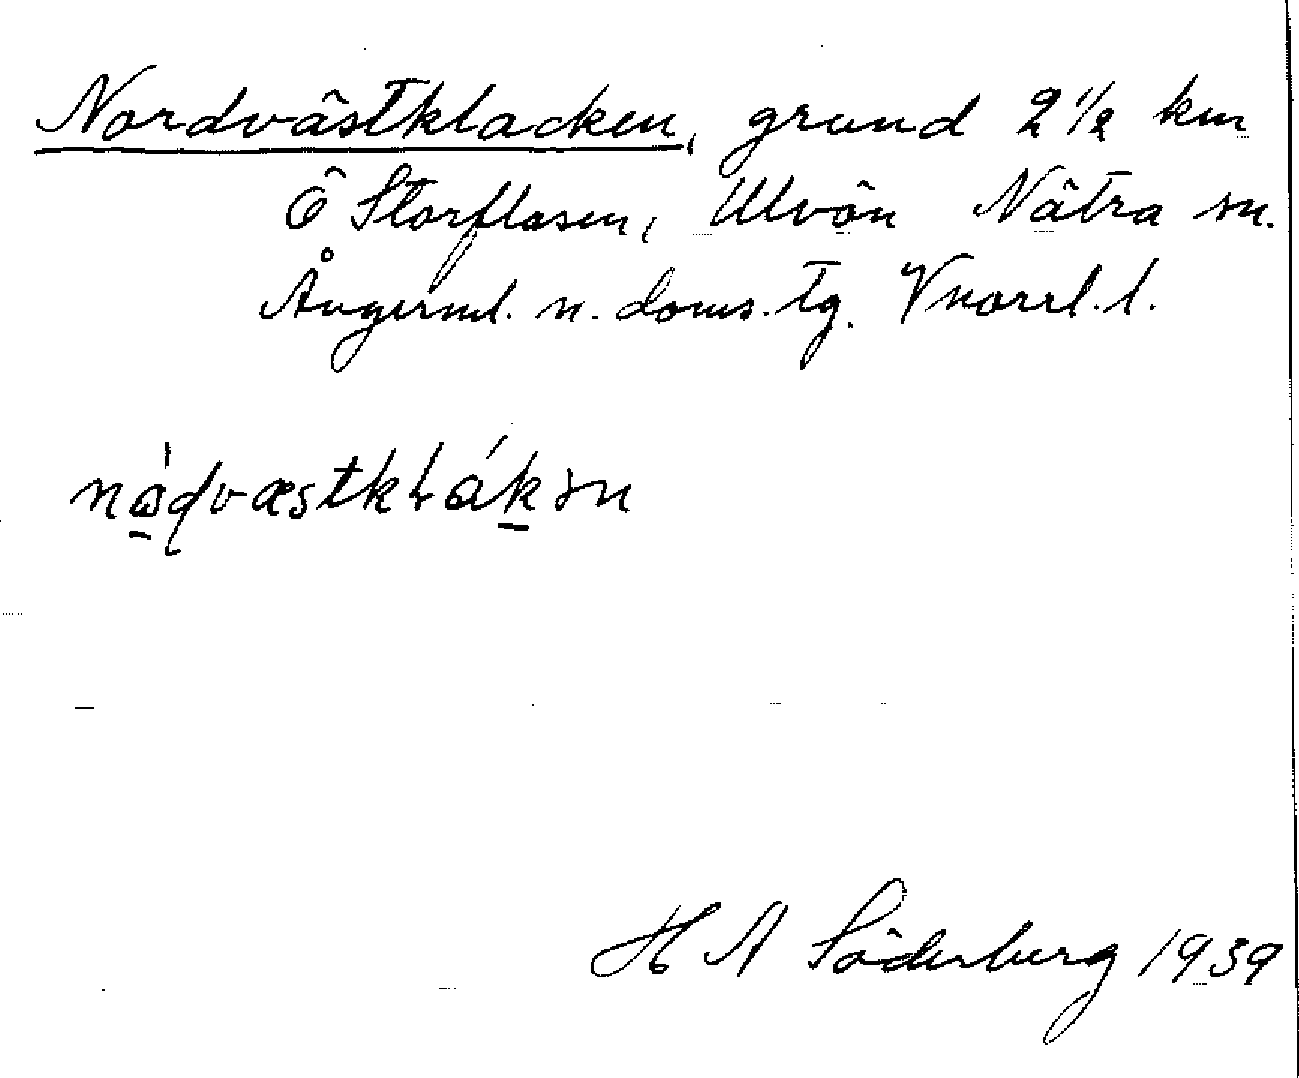 Nordvästklacken, grund 2 1/2 km
Ö Storflasen, Ulvön Nätra sn.
Ångerml. n. doms. tg. Vnorrl. l.
H A Söderberg 1939